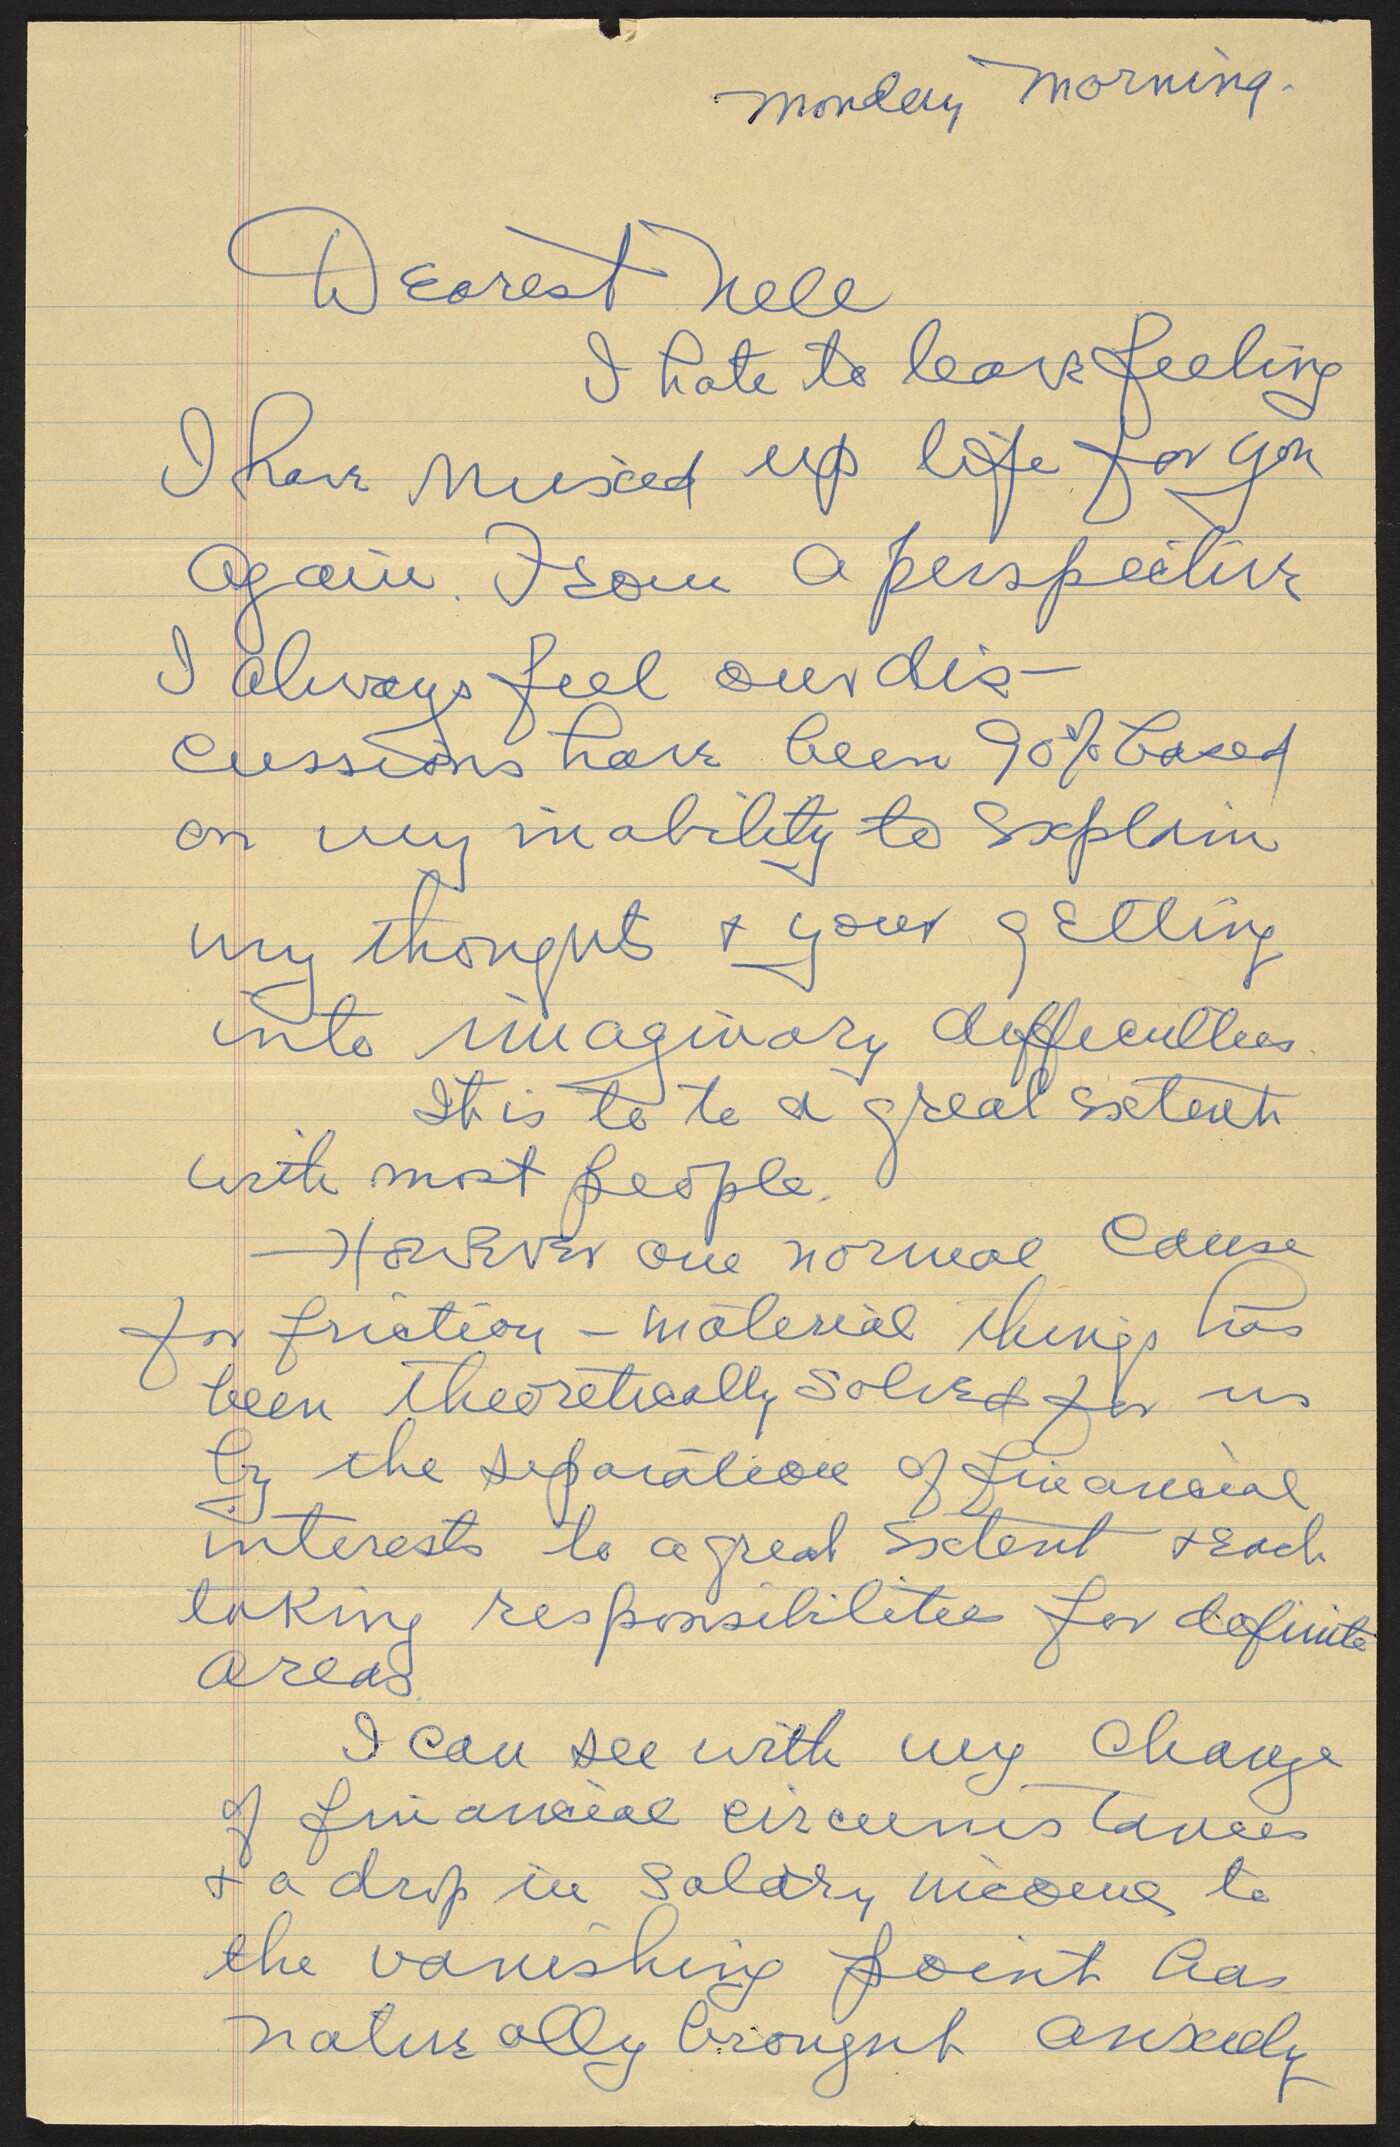 Monday Morning.
Dearest Nell
I hate to leave feeling
I have mixed up life for you
again. From a perspective
I always feel our dis-
cussions have been 90% based
on my inability to explain
my thoughts + your getting
into imaginary difficulties.
It is to to a great extent
with most people.
However one normal cause
for friction - material things has
been theoretically solved for us
by the separation of financial
interests to a great extent + each
taking responsibilities for definite
areas.
I can see with my change
of financial circumstances
+ a drop in salary income to
the vanishing point has
naturally brought anxiety